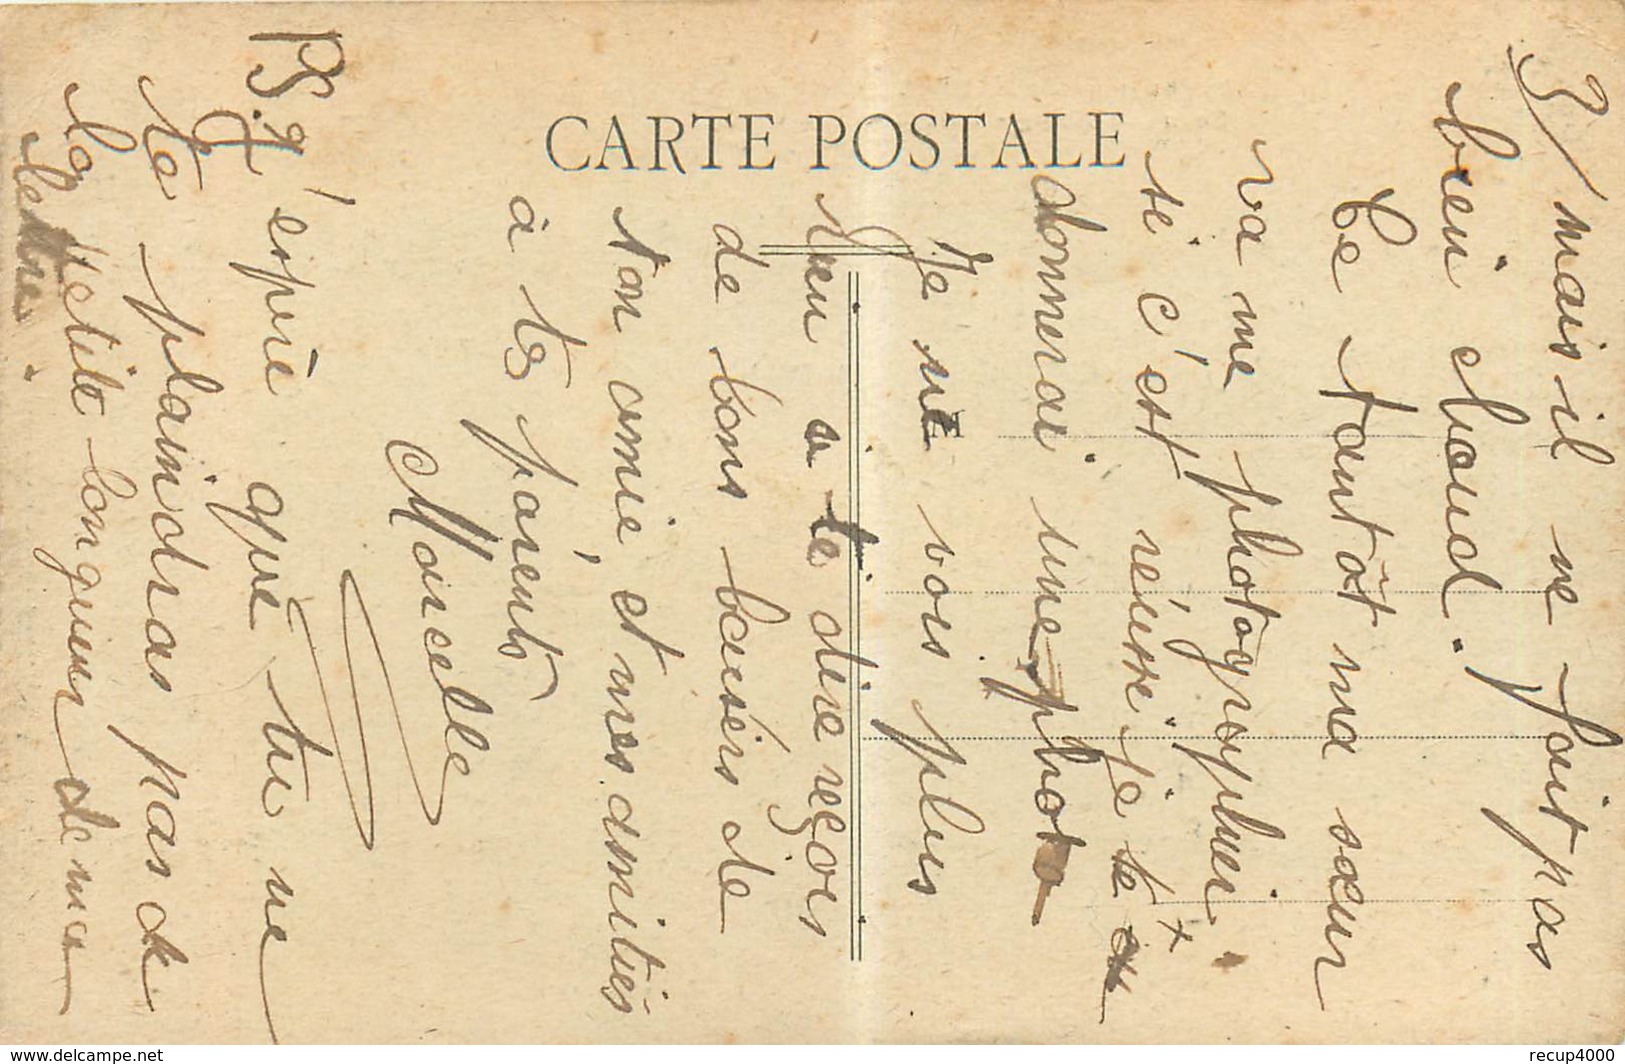 CARTE POSTALE
3/ mais il ne fait pas
bien chaud.
Ce tantôt ma sœur
va me photographier
si c'est réussi je te
donnerai une photo
Je ne vois plus
rien a te dire reçois
de bons baisers de
ton amie et mes amitiés
à tes parents
Marcelle
PS. J'espère que tu ne
te plaindras pas de
la petite longueur de ma
lettre.
www.delcampe.net
recup4000